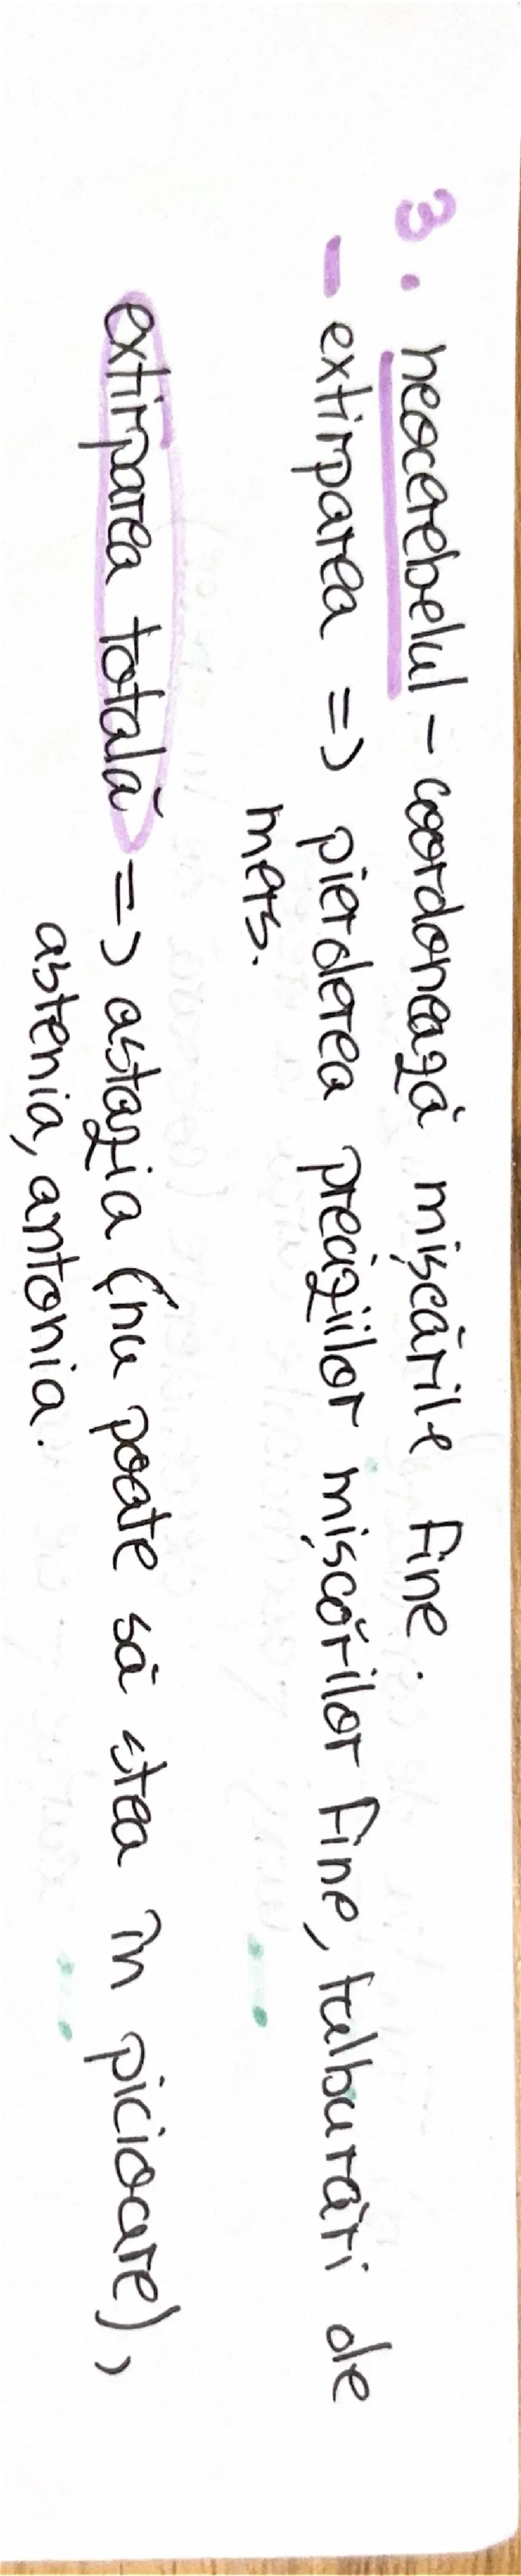 3. neocerebelul - coordonează mișcările fine.
- extirparea => pierderea preciziilor mișcărilor fine, tulburări de
mers.
extirparea totală => astazia (nu poate să stea în picioare),
astenia, antonia.